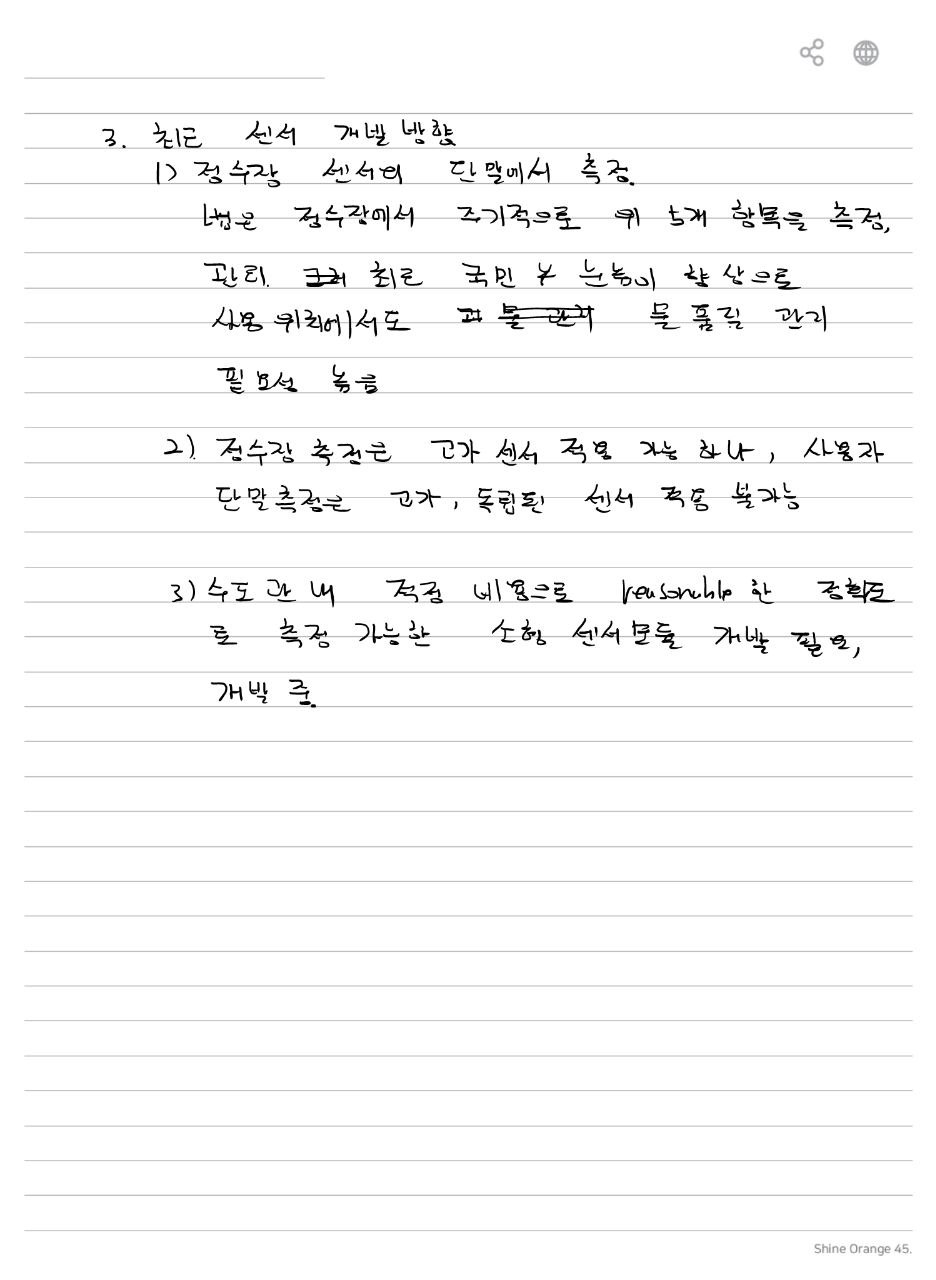 3. 최근 센서 개발 방향
1) 정수장 센서의 단말에서 측정.
법은 정수장에서 주기적으로 위 5개 항목을 측정,
관리. 최근 국민 눈높이 향상으로
사용 위치에서도 물 품질 관리
필요성 높음
2). 정수장 측정은 고가 센서 적용 가능 하나, 사용자
단말측정은 고가, 독립된 센서 적용 불가능
3) 수도 관 내 적정 비용으로 reasonable 한 정확도
로 측정 가능한 소형 센서모듈 개발 필요,
개발 중.
Shine Orange 45.